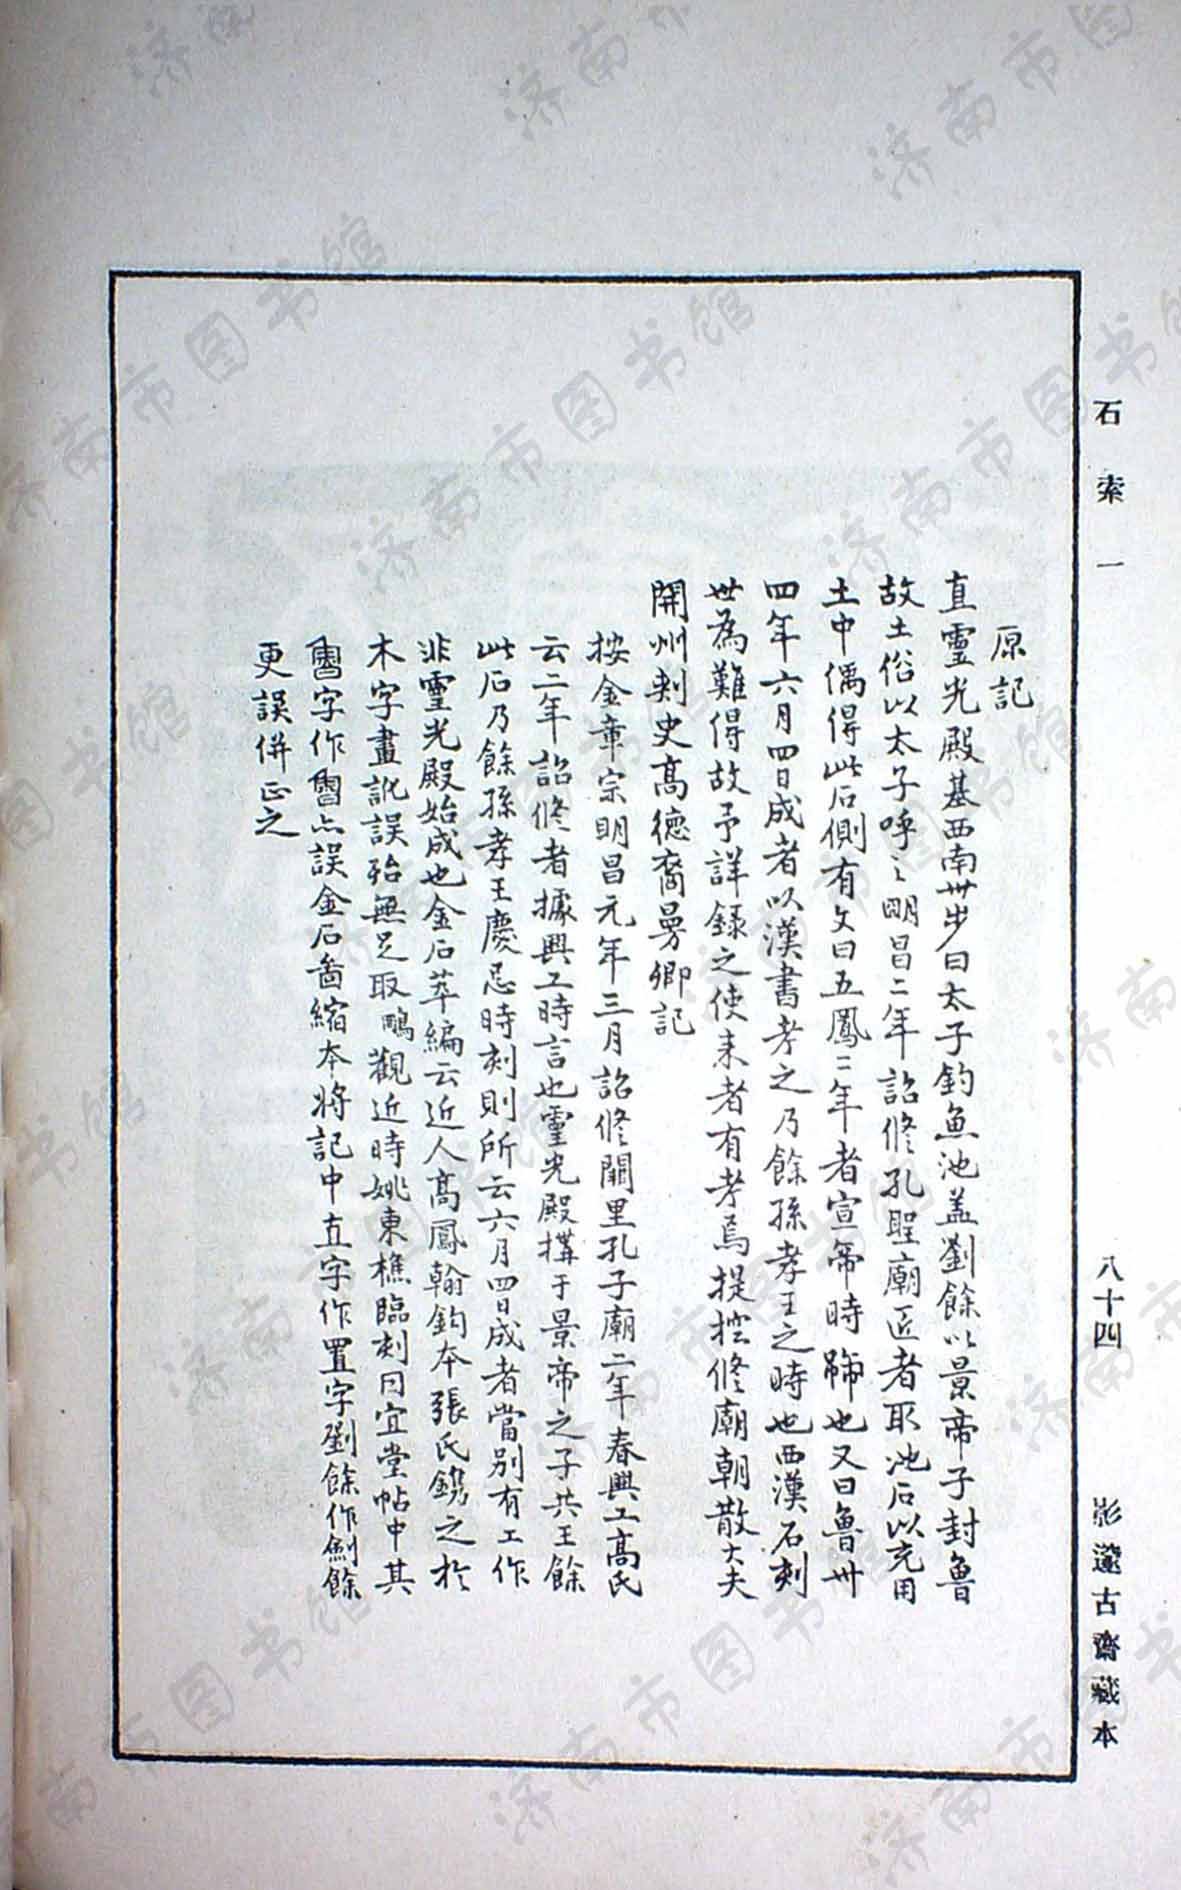 石索一
八十四
影遼古齋藏本
原記
直靈光殿基西南卅步曰太子釣魚池盖劉餘以景帝子封魯
故土俗以太子呼之明昌二年詔修孔聖廟匠者取池石以充用
土中偶得此石側有文曰五鳳二年者宣帝時号也又曰魯卅
四年六月四日成者以漢書考之乃餘孫孝王之時也西漢石刻
世為難得故予詳錄之使來者有考焉提控修廟朝散大夫
開州刺史高德裔曼卿記
按金章宗明昌元年三月詔修闕里孔子廟二年春興工高氏
云二年詔修者據興工時言也靈光殿搆于景帝之子共王餘
此石乃餘孫孝王慶忌時刻則所云六月四日成者當別有工作
非靈光殿始成也金石萃編云近人高鳳翰鈎本張氏鐫之於
木字畫訛誤殆無足取鵬觀近時姚東樵臨刻因宜堂帖中其
魯字作魯亦誤金石啚縮本將記中直字作置字劉餘作劍餘
更誤併正之
济南市图书馆